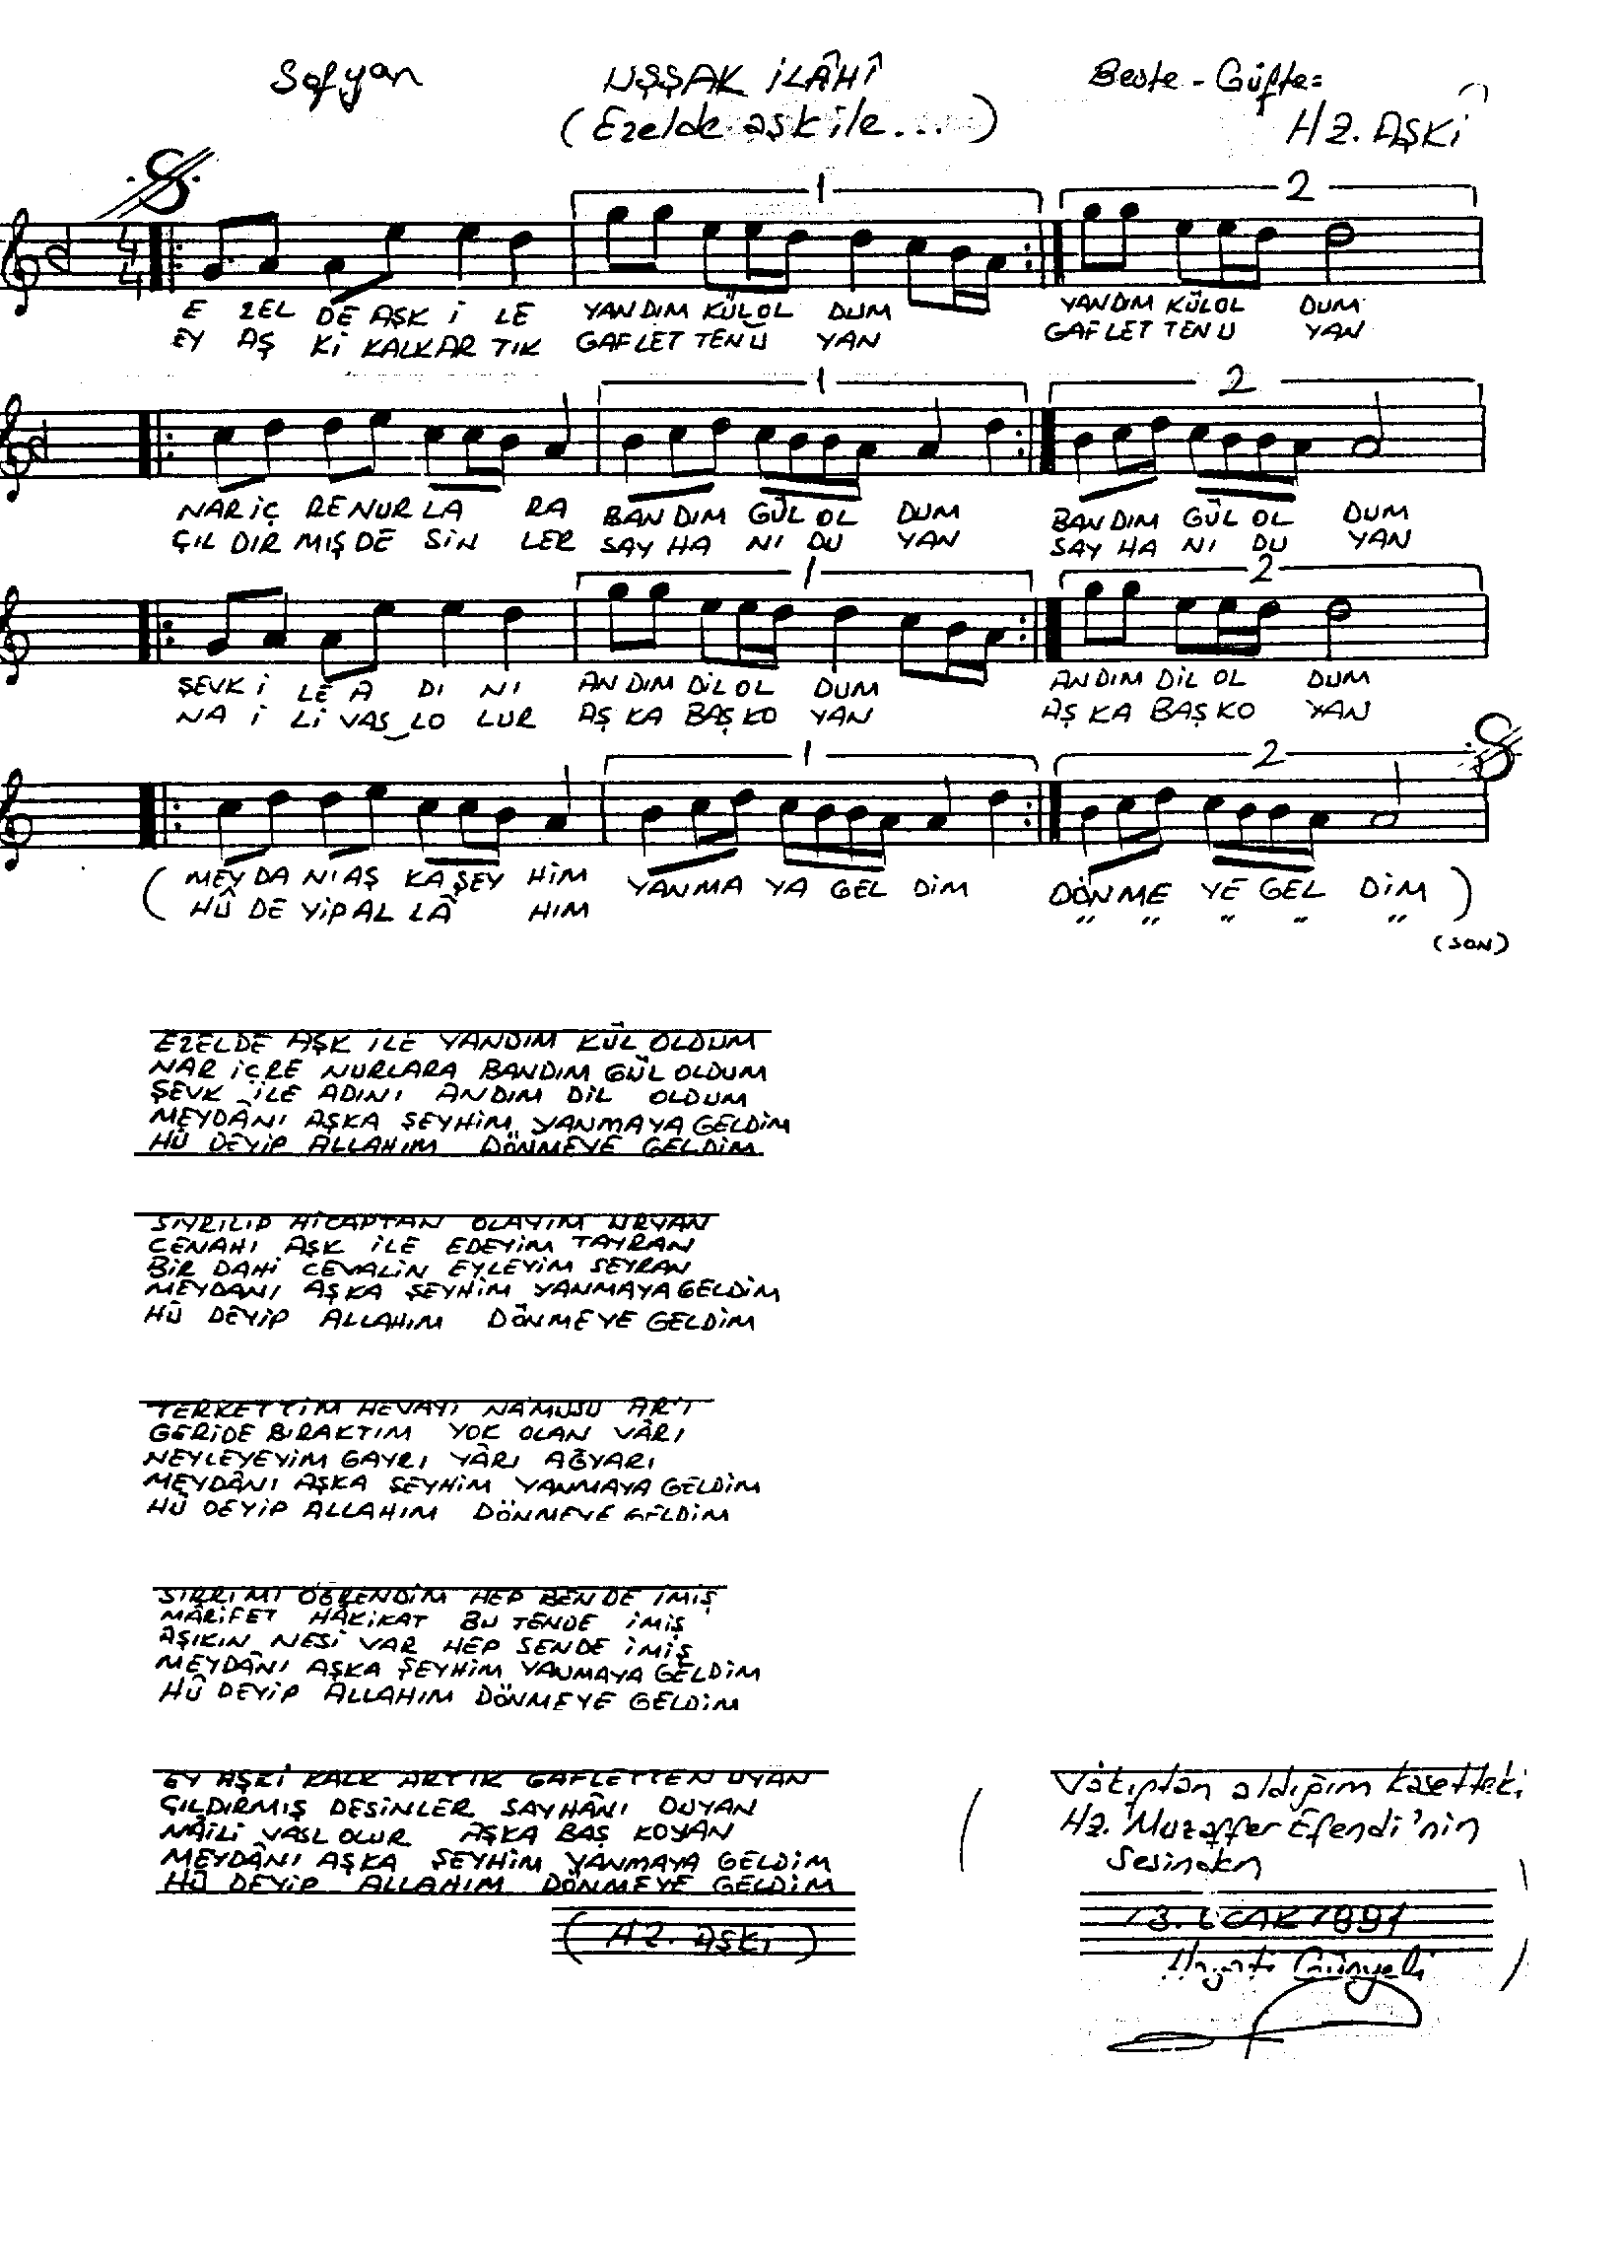 Sofyan UŞŞAK İLÂHÎ Beste - Güfte=
(Ezelde aşk ile....) HZ. AŞKİ
1 2
4
4
E ZEL DE AŞK İ LE YANDIM KÜLOL DUM YANDIM KÜLOL DUM
EY AŞ Kİ KALKAR TIK GAFLET TENU YAN GAFLET TENU YAN
1 2
NAR İÇ RE NUR LA RA BAN DIM GÜL OL DUM BAN DIM GÜL OL DUM
ÇIL DIR MIŞ DE SİN LER SAY HA NI DU YAN SAY HA NI DU YAN
1 2
ŞEVK İ LE A DI NI AN DIM DİL OL DUM AN DIM DİL OL DUM
NA İ Lİ VAS_LO LUR AŞ KA BAŞ KO YAN AŞ KA BAŞ KO YAN
1 2
( MEY DA NI AŞ KA ŞEY HİM YANMA YA GEL DİM DÖNME YE GEL DİM )
HÛ DE YİP AL LÂ HIM " " " " "
(SON)
EZELDE AŞK İLE YANDIM KÜL OLDUM
NAR İÇRE NURLARA BANDIM GÜL OLDUM
ŞEVK İLE ADINI ANDIM DİL OLDUM
MEYDÂNI AŞKA ŞEYHİM YANMAYA GELDİM
HÛ DEYİP ALLAHIM DÖNMEYE GELDİM
SIYRILIP HİCAPTAN OLAYIM URYAN
CENAHI AŞK İLE EDEYİM TAYRAN
BİR DAHİ CEMALİN EYLEYİM SEYRAN
MEYDANI AŞKA ŞEYHİM YANMAYA GELDİM
HÛ DEYİP ALLAHIM DÖNMEYE GELDİM
TERKETTİM HEVAYI NAMUSU AR'I
GERİDE BIRAKTIM YOK OLAN VÂRI
NEYLEYEYİM GAYRI YÂRI AĞYARI
MEYDÂNI AŞKA ŞEYHİM YANMAYA GELDİM
HÛ DEYİP ALLAHIM DÖNMEYE GELDİM
SIRRIMI ÖĞRENDİM HEP BENDE İMİŞ
MÂRİFET HAKİKAT BU TENDE İMİŞ
AŞIKIN NESİ VAR HEP SENDE İMİŞ
MEYDÂNI AŞKA ŞEYHİM YANMAYA GELDİM
HÛ DEYİP ALLAHIM DÖNMEYE GELDİM
EY AŞKİ KALK ARTIK GAFLETTEN UYAN
ÇILDIRMIŞ DESİNLER SAYHÂNI DUYAN
NÂİLİ VASL OLUR AŞKA BAŞ KOYAN
MEYDÂNI AŞKA ŞEYHİM YANMAYA GELDİM
HÛ DEYİP ALLAHIM DÖNMEYE GELDİM
(HZ. AŞKI)
(Vakıptan aldığım kasetteki
Hz. Muzaffer Efendi'nin
Sesinden
13. OCAK 1991
Hayati Günyeli)